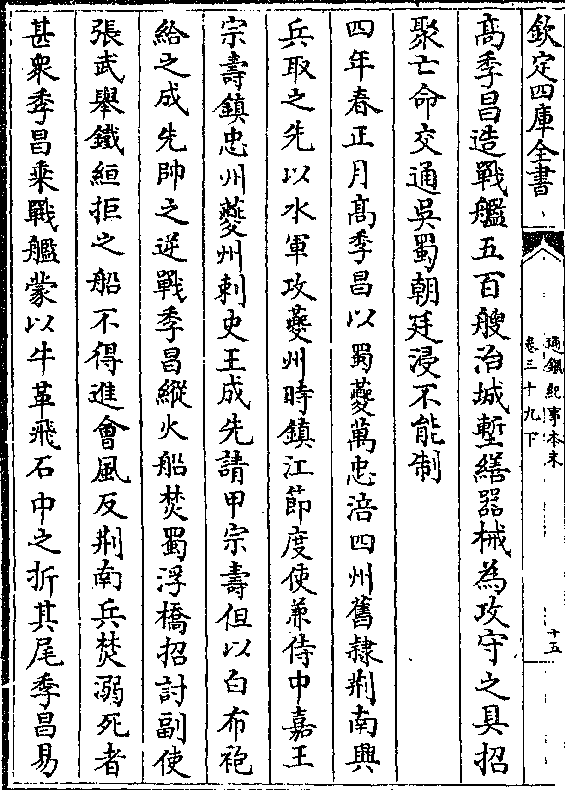 欽定四庫全書
通鑑紀事本末
卷三十九下
十五
高季昌造戰艦五百艘治城塹繕器械為攻守之具招
聚亡命交通吳蜀朝廷浸不能制
四年春正月高季昌以蜀夔萬忠涪四州舊隸荆南興
兵取之先以水軍攻夔州時鎮江節度使兼侍中嘉王
宗壽鎮忠州夔州刺史王成先請甲宗壽但以白布袍
給之成先帥之逆戰季昌縱火船焚蜀浮橋招討副使
張武舉鐵絙拒之船不得進會風反荆南兵焚溺死者
甚衆季昌乘戰艦蒙以牛革飛石中之折其尾季昌易